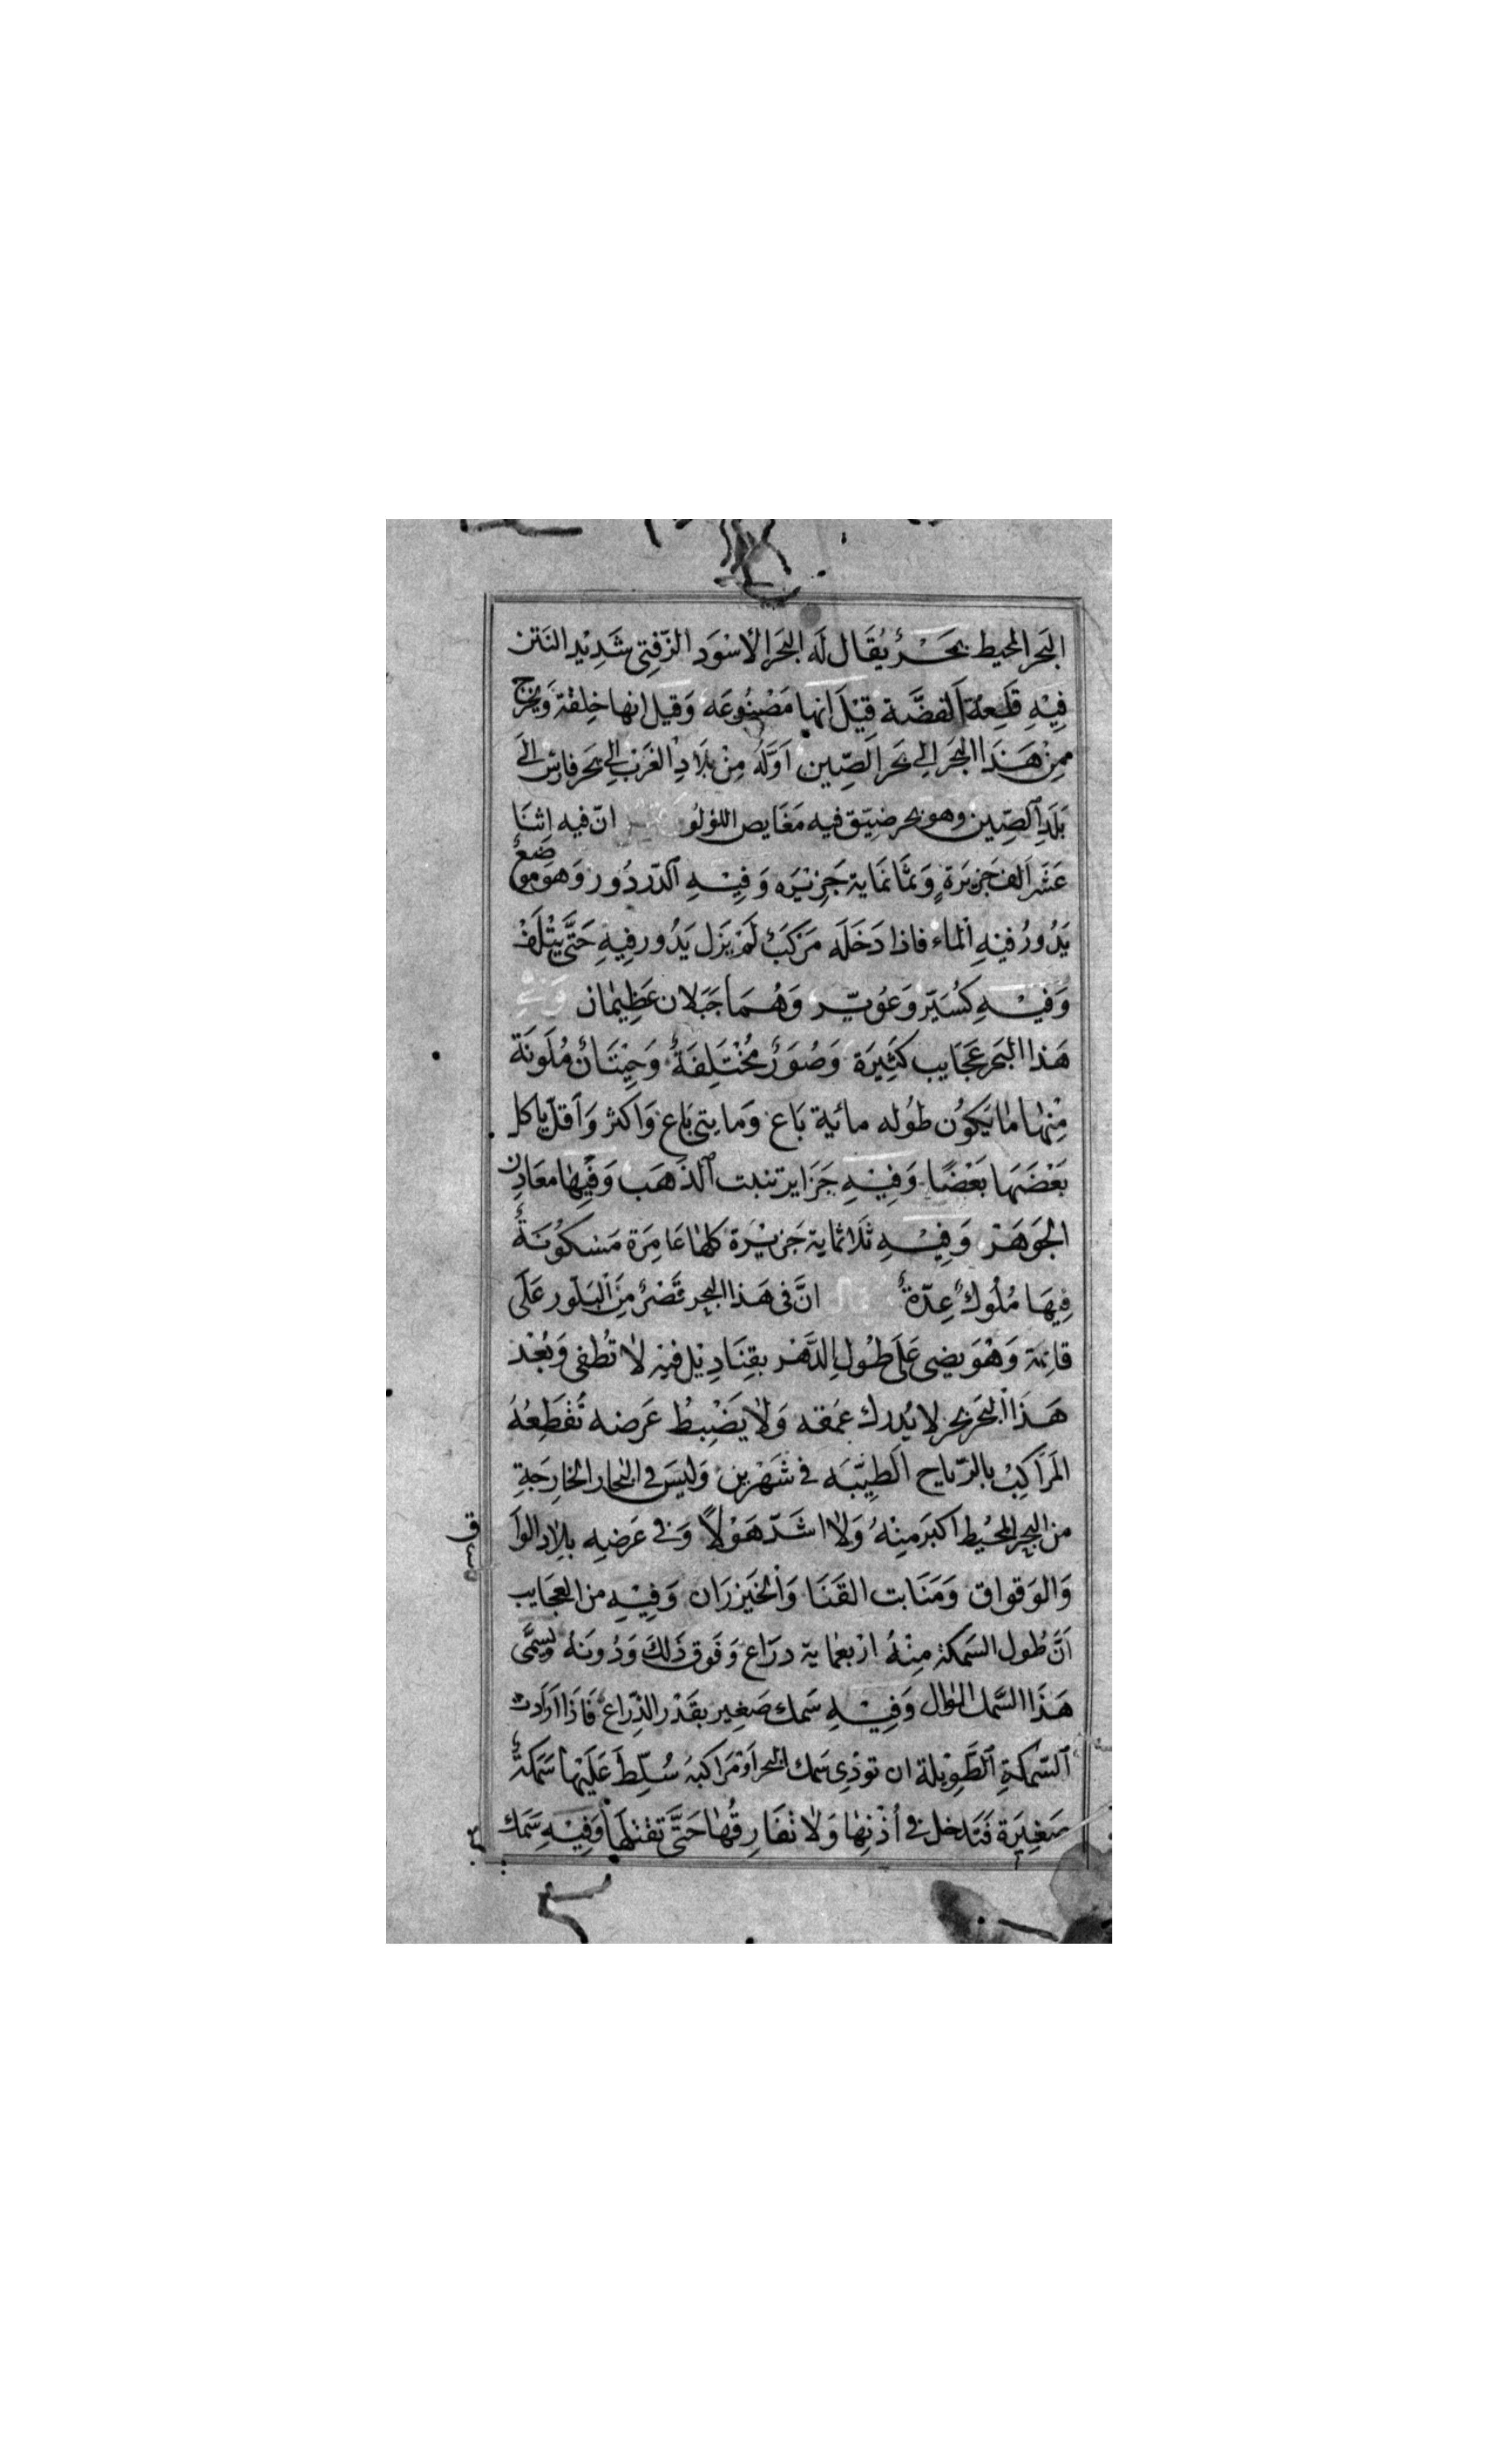 البَحر المحيط بحَرٌ يُقَال لَه البَحَر الاسْوَد الزّفِتى شَدِيْد النَتن
فِيْهِ قَلعة اَلفضَّة قِيْلَ انها مَصْنُوعَه وَقيل انها خِلقة وَيخرج
مِنْ هَذَا البَحَر الى بَحَر الصِّين اَوَّلُه مِنْ بلَادِ الغَرْب الى بَحَر فارسْ الَى
بَلَدِ الصِّين وهو بحر ضيّق فيه مَغَايص اللؤلؤ انّ فيه اثنَا
عَشَر اَلف جَزيرَةٍ وَثمَانمَاية جَزِيْرَه وَفِيْهِ الدّردُور وَهوَ موضعٌ
يَدُورُ فيهِ اْلماء فاذا دَخَلَه مَركَبٌ لَمْ يَزل يَدُور فِيهِ حَتَّى يَتْلَفْ
وَفيْهِ كسَيَر وَعوير وَهُمَا جَبَلان عَظِيمان وَفي
هَذا البَحر عَجَايب كَثِيرَة وَصُوَرٌ مُخْتَلِفَةٌ وَحِيْتَانٌ مُلَونَة
مِنْهَا مَا يَكوُن طوُله مائية بَاع وَمايتى بَاع وَاكثر وَاَقل ياكل
بَعْضَهَا بَعْضًا وَفِيْهِ جَزَاير تنبت الذهَب وَفِيْهَا مَعَادِن
الجَوهَرْ وَفِيْهِ ثَلاثماية جَزيْرَة كلها عَامِرَة مَسكوُنَةٌ
فِيهَا مُلُوكٌ عِدّةٌ قال انَّ فى هَذا البحِر قَصْرٌ مِنَ البَلّور عَلَى
قائِمَة وَهْوَ يضِى عَلَى طوُلِ الدَّهر بقِنَادِيْل فيْهِ لَا تُطفى وَبُعْد
هَذَا اْلبحَر بحر لا يُدرك عمَقه وَلَا يَضْبِطُ عَرضه تُقْطَعُهُ
المَرَاكِبُ بالرّيَاح الَطيّبَه فى شَهْرين وَليسَ فى البحار الخارِجَةِ
من البحِر المحُيْط اكبَر مِنْهُ وَلَا اشَدّ هَوْلًا وَفى عَرضِهِ بلَاد الوَا
ق
وَالوَقوَاق وَمَنَابت القَنَا وَاْلخَيزرَان وَفِيْهِ من العجَايب
اَنَّ طوُل السَمكة مِنْهُ اربعماية دراع وَفَوق ذَلكَ وَدُونَهُ وَيسَمَّى
هَذَا السَّمك الوال وَفِيْهِ سَمك صَغِير بقَدْر الذّرَاع فَاذَا اَرَادت
السّمَكةِ الطَّوِيلة ان توذِى سَمك البحر اوْ مَراكبهُ سُلّطَ عَلَيْهَا سَمَكةٌ
صَغِيرَة فَتَدخل فى اُذْنِهَا وَلَا تفَارِقُهَا حَتَّى تقتلهَا وَفِيْهِ سَمك